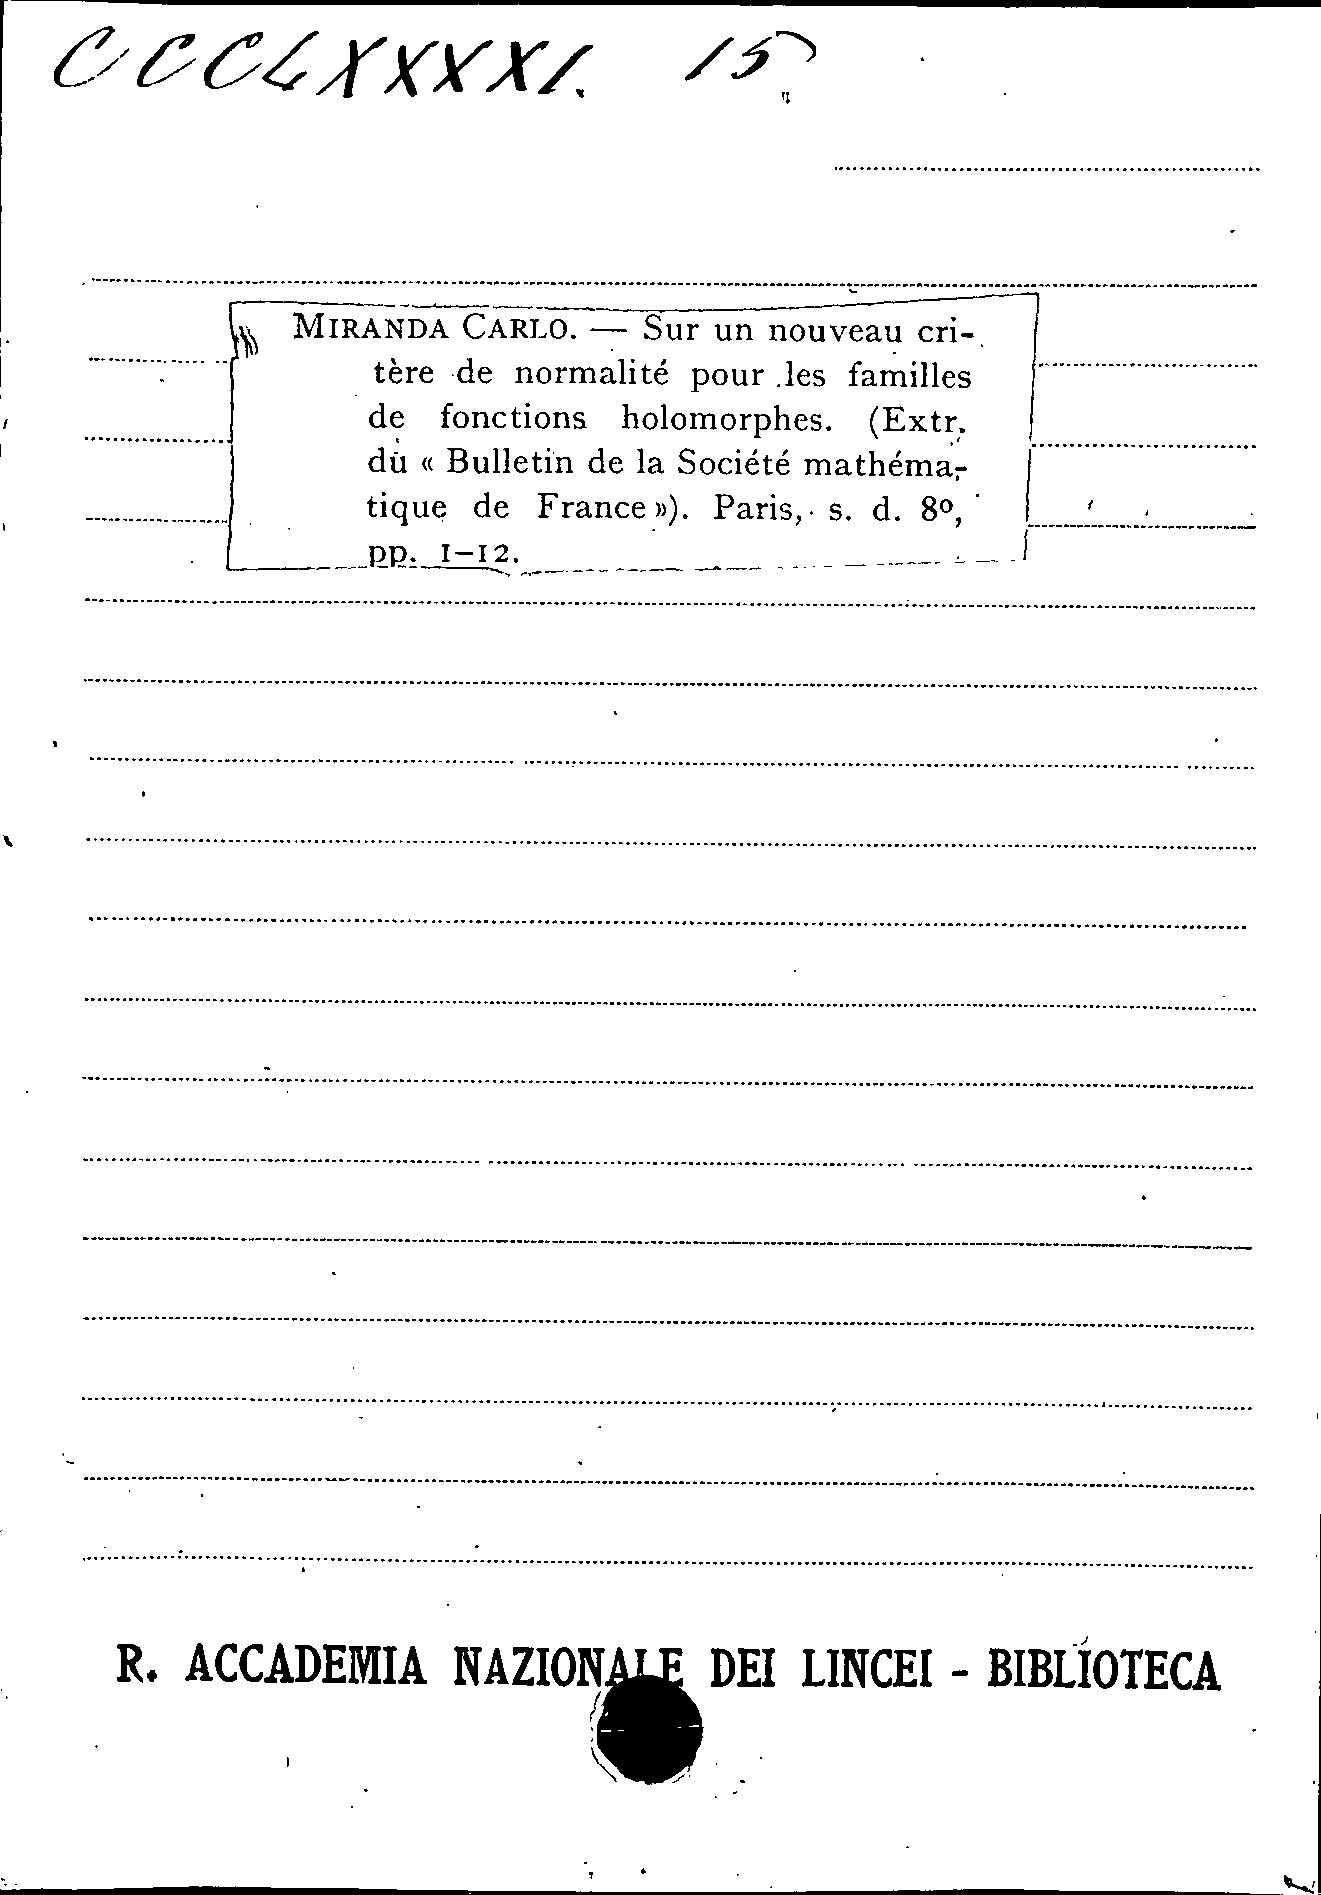 CCCLXXXXI. 15
MIRANDA CARLO. — Sur un nouveau cri-
tère de normalité pour les familles
de fonctions holomorphes. (Extr.
du « Bulletin de la Société mathéma-
tique de France »). Paris, s. d. 8º,
pp. 1-12.
R. ACCADEMIA NAZIONALE DEI LINCEI - BIBLIOTECA